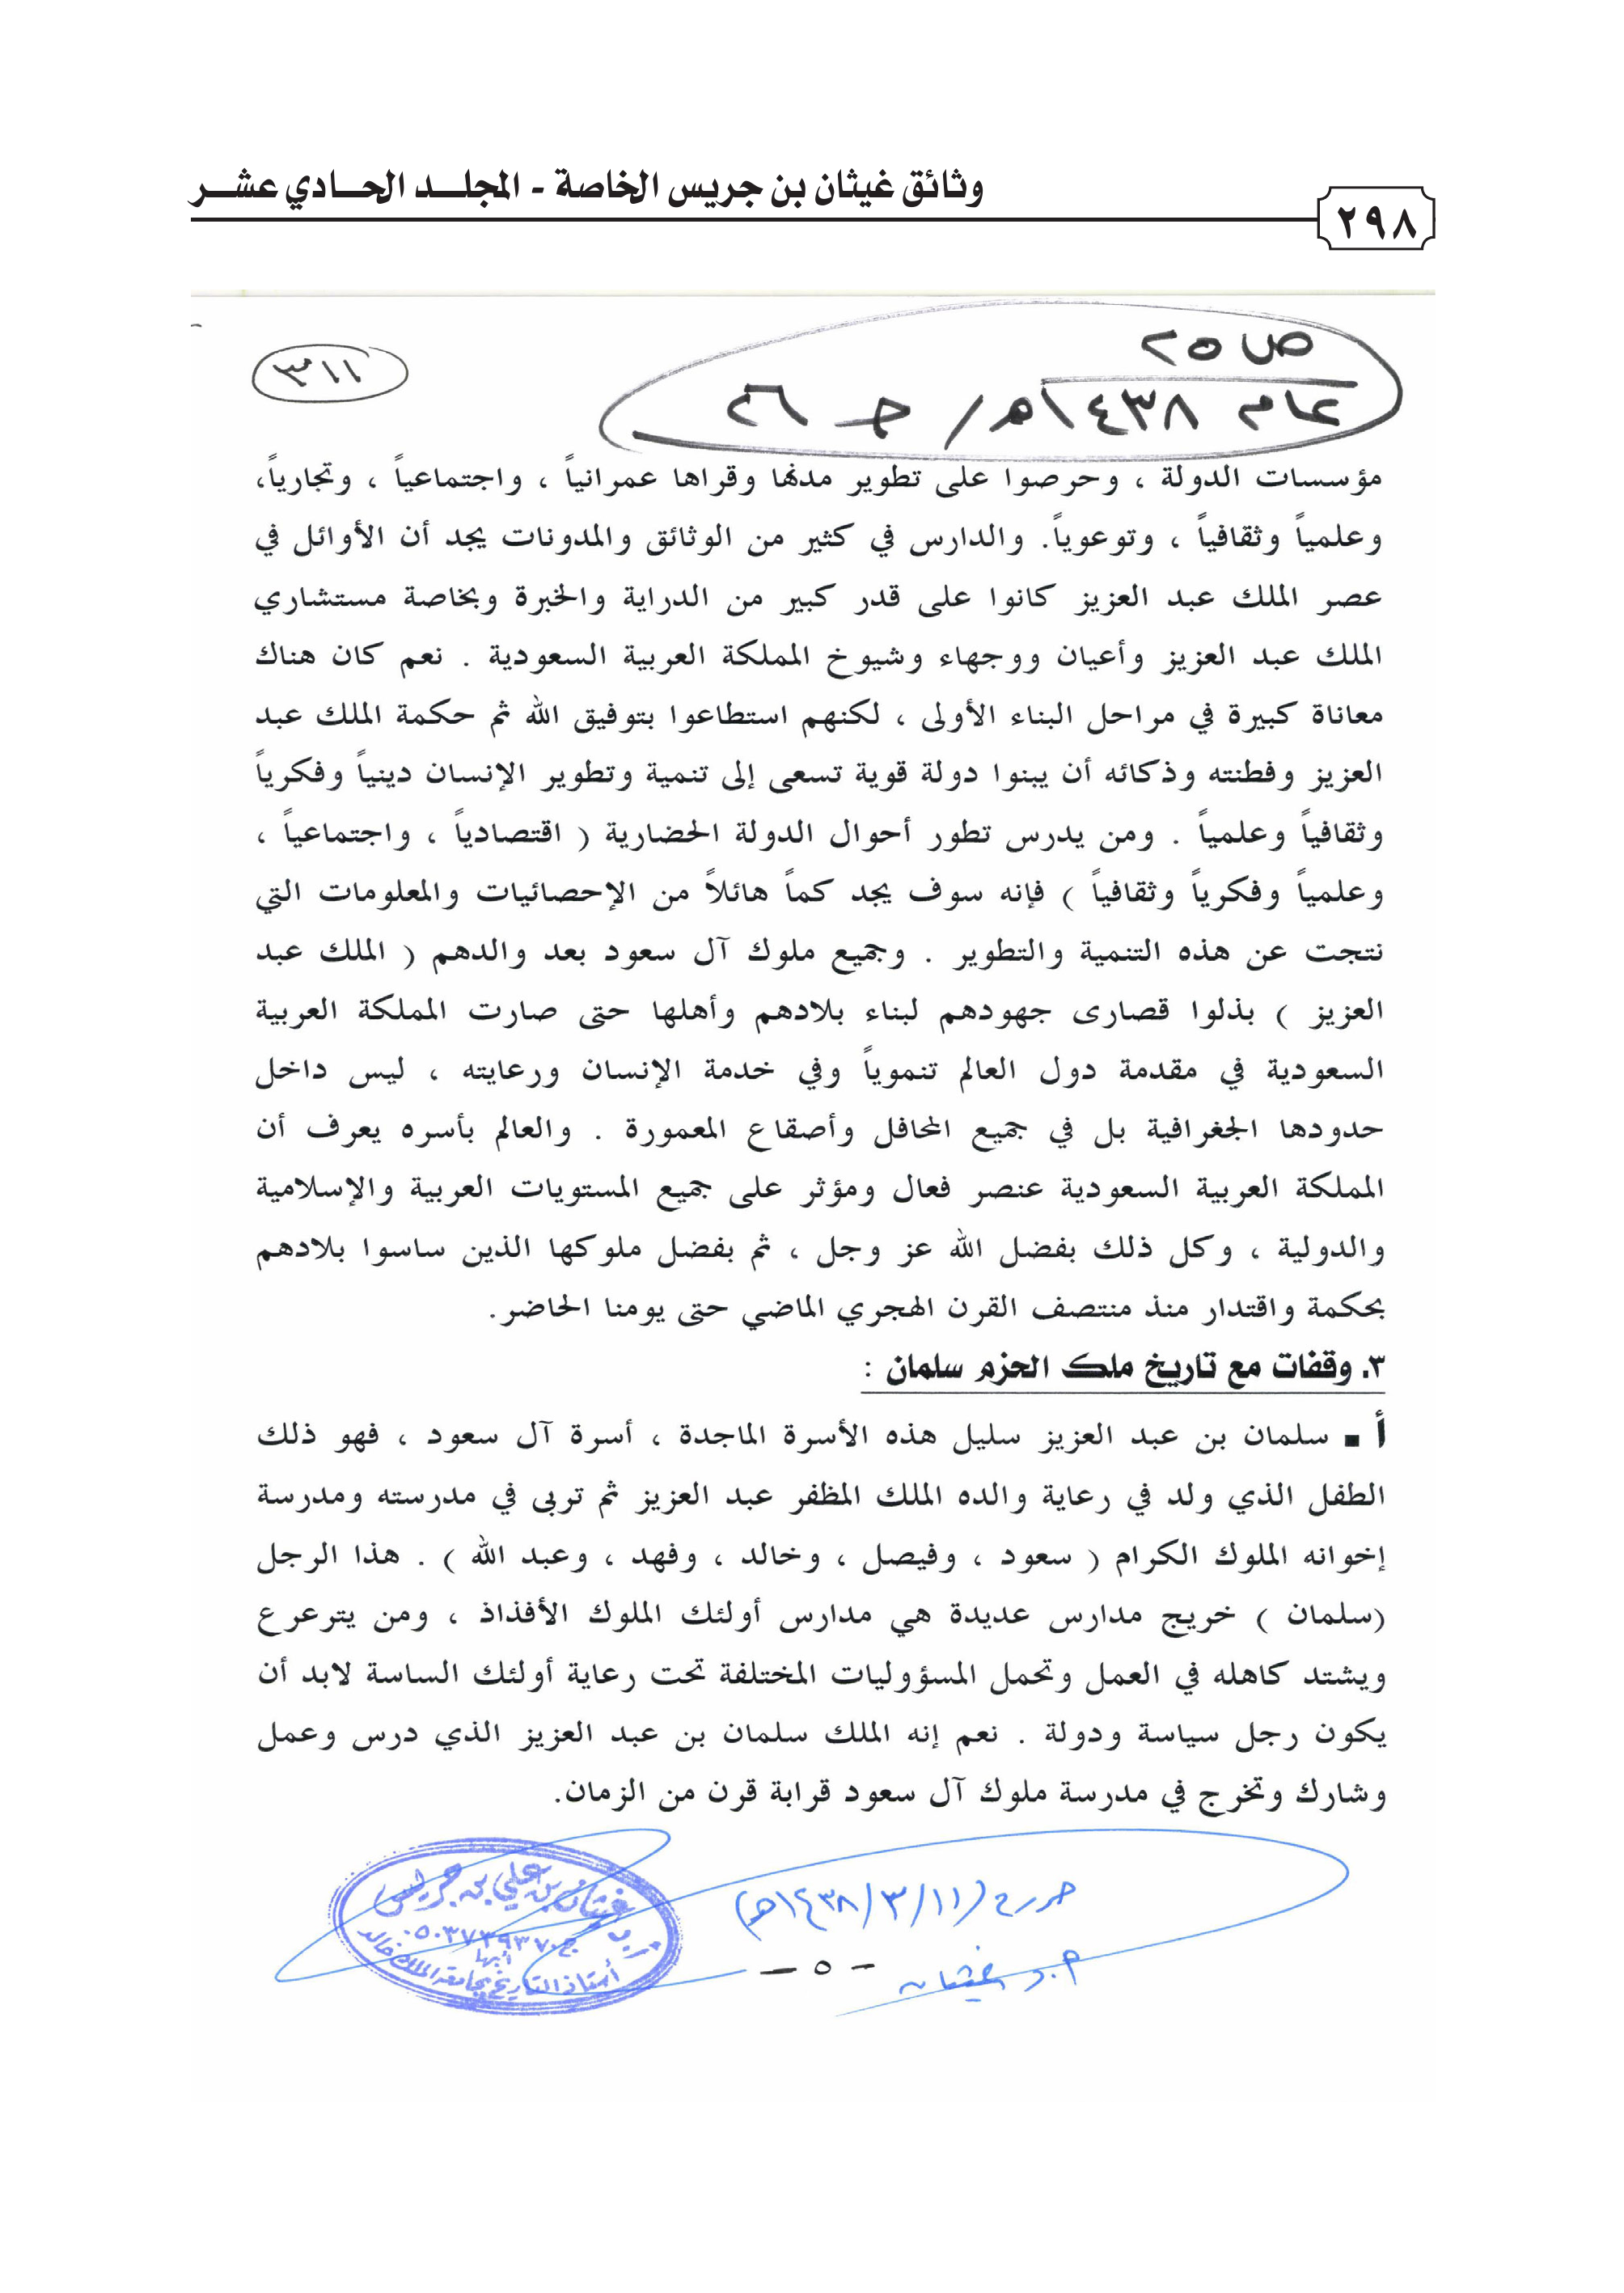 وثائق غيثان بن جريس الخاصة - المجلـــد الحـــادي عشـــر
٢٩٨
ص ٢٥
عام ١٤٣٨هـ / جـ ٢٦
٣١١
مؤسسات الدولة ، وحرصوا على تطوير مدنها وقراها عمرانياً ، واجتماعياً ، وتجارياً،
وعلمياً وثقافياً ، وتوعوياً. والدارس في كثير من الوثائق والمدونات يجد أن الأوائل في
عصر الملك عبد العزيز كانوا على قدر كبير من الدراية والخبرة وبخاصة مستشاري
الملك عبد العزيز وأعيان ووجهاء وشيوخ المملكة العربية السعودية . نعم كان هناك
معاناة كبيرة في مراحل البناء الأولى ، لكنهم استطاعوا بتوفيق الله ثم حكمة الملك عبد
العزيز وفطنته وذكائه أن يبنوا دولة قوية تسعى إلى تنمية وتطوير الإنسان دينياً وفكرياً
وثقافياً وعلمياً . ومن يدرس تطور أحوال الدولة الحضارية ( اقتصادياً ، واجتماعياً ،
وعلمياً وفكرياً وثقافياً ) فإنه سوف يجد كماً هائلاً من الإحصائيات والمعلومات التي
نتجت عن هذه التنمية والتطوير . وجميع ملوك آل سعود بعد والدهم ( الملك عبد
العزيز ) بذلوا قصارى جهودهم لبناء بلادهم وأهلها حتى صارت المملكة العربية
السعودية في مقدمة دول العالم تنموياً وفي خدمة الإنسان ورعايته ، ليس داخل
حدودها الجغرافية بل في جميع المحافل وأصقاع المعمورة . والعالم بأسره يعرف أن
المملكة العربية السعودية عنصر فعال ومؤثر على جميع المستويات العربية والإسلامية
والدولية ، وكل ذلك بفضل الله عز وجل ، ثم بفضل ملوكها الذين ساسوا بلادهم
بحكمة واقتدار منذ منتصف القرن الهجري الماضي حتى يومنا الحاضر.
٣. وقفات مع تاريخ ملك الحزم سلمان :
أ ▪ سلمان بن عبد العزيز سليل هذه الأسرة الماجدة ، أسرة آل سعود ، فهو ذلك
الطفل الذي ولد في رعاية والده الملك المظفر عبد العزيز ثم تربى في مدرسته ومدرسة
إخوانه الملوك الكرام ( سعود ، وفيصل ، وخالد ، وفهد ، وعبد الله ) . هذا الرجل
(سلمان ) خريج مدارس عديدة هي مدارس أولئك الملوك الأفذاذ ، ومن يترعرع
ويشتد كاهله في العمل وتحمل المسؤوليات المختلفة تحت رعاية أولئك الساسة لابد أن
يكون رجل سياسة ودولة . نعم إنه الملك سلمان بن عبد العزيز الذي درس وعمل
وشارك وتخرج في مدرسة ملوك آل سعود قرابة قرن من الزمان.
(١١/٣/١٤٣٨هـ)
أ.د غيثان
- ٥ -
غيثان بن علي بن جريس
أبها
أستاذ التاريخ بجامعة الملك خالد